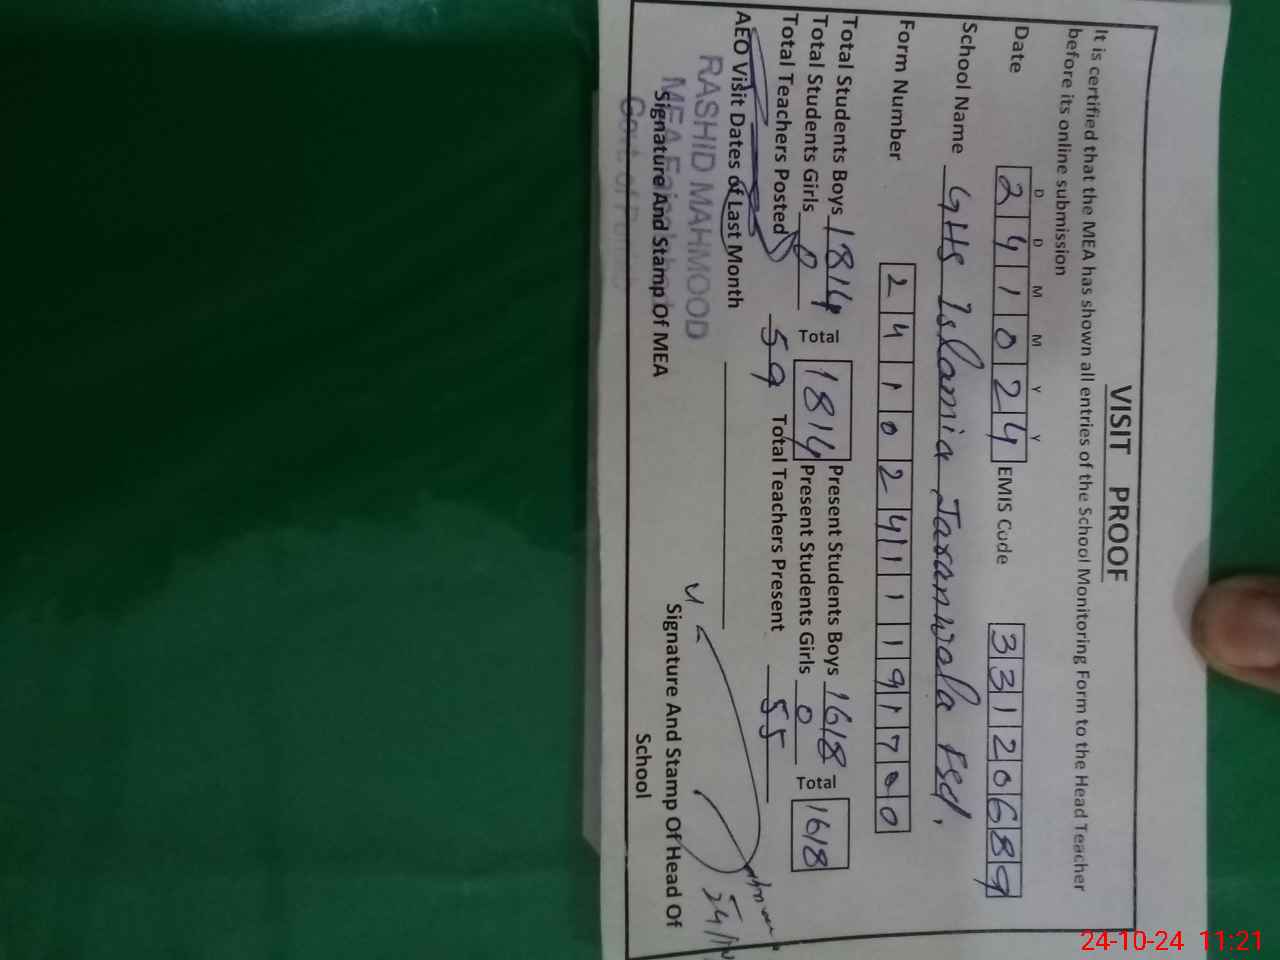 VISIT PROOF
It is certified that the MEA has shown all entries of the School Monitoring Form to the Head Teacher
before its online submission
D D M M Y Y
Date 241024 EMIS Code 33120689
School Name GHS Islamia Jaranwala Fsd.
Form Number 24102411191700
Total Students Boys 1814 Total 1814 Present Students Boys 1618 Total 1618
Total Students Girls 0 Present Students Girls 0
Total Teachers Posted 59 Total Teachers Present 55
AEO Visit Dates of Last Month
RASHID MAHMOOD
MEA
Govt. of
Signature And Stamp Of MEA
Signature And Stamp Of Head Of
School
24-10-24 11:21